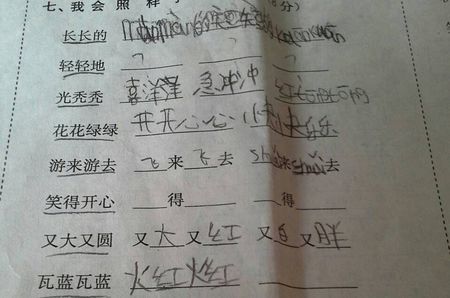 七、我会照样子 分)
长长的
轻轻地 ? ? ?
光秃秃 喜洋洋 急冲冲 红彤彤
花花绿绿 开开心心 快快乐乐
游来游去 飞来飞去 shuǐ来shuǐ去
笑得开心 得 得
又大又圆 又大又红 又白又胖
瓦蓝瓦蓝 火红火红